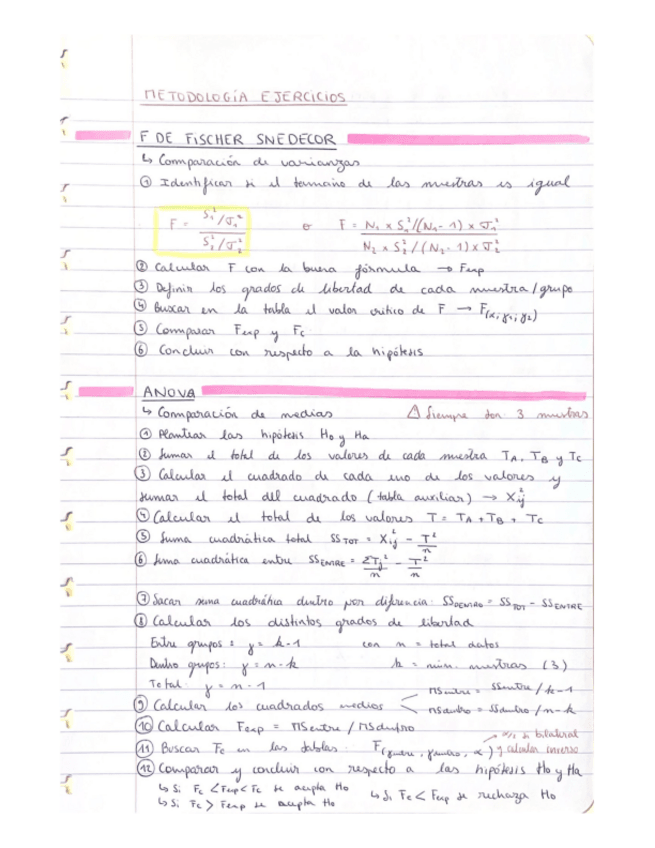 METODOLOGÍA EJERCICIOS
F DE FISCHER SNEDECOR
↳ Comparación de varianzas
① Identificar si el tamaño de las muestras es igual
F = (S₁²/σ₁²) / (S₂²/σ₂²) o F = N₁ × S₁²/(N₁-1) × σ₁² / N₂ × S₂²/(N₂-1) × σ₂²
② Calcular F con la buena fórmula → Fexp
③ Definir los grados de libertad de cada muestra/grupo
④ Buscar en la tabla el valor crítico de F → F(α; γ₁; γ₂)
⑤ Comparar Fexp y Fc
⑥ Concluir con respecto a la hipótesis
ANOVA
↳ Comparación de medias ⚠ Siempre son 3 muestras
① Plantear las hipótesis Ho y Ha
② Sumar el total de los valores de cada muestra TA, TB y TC
③ Calcular el cuadrado de cada uno de los valores y
sumar el total del cuadrado (tabla auxiliar) → Xij²
④ Calcular el total de los valores T = TA + TB + TC
⑤ Suma cuadrática total SSTOT = Xij² - T²/n
⑥ Suma cuadrática entre SSENTRE = ΣTj²/n - T²/n
⑦ Sacar suma cuadrática dentro por diferencia: SSDENTRO = SSTOT - SSENTRE
⑧ Calcular los distintos grados de libertad
Entre grupos: γ = k-1 con n = total datos
Dentro grupos: γ = n-k k = núm. muestras (3)
Total: γ = n-1
⑨ Calcular los cuadrados medios < MSentre = SSentre/k-1
MSdentro = SSdentro/n-k
⑩ Calcular Fexp = MSentre/MSdentro
⑪ Buscar Fc en las tablas: F(γentre, γdentro, α) → α/2 si bilateral
y calcular inverso
⑫ Comparar y concluir con respecto a las hipótesis Ho y Ha
↳ Si Fc < Fexp < Fc se acepta Ho ↳ Si Fc < Fexp se rechaza Ho
↳ Si Fc > Fexp se acepta Ho